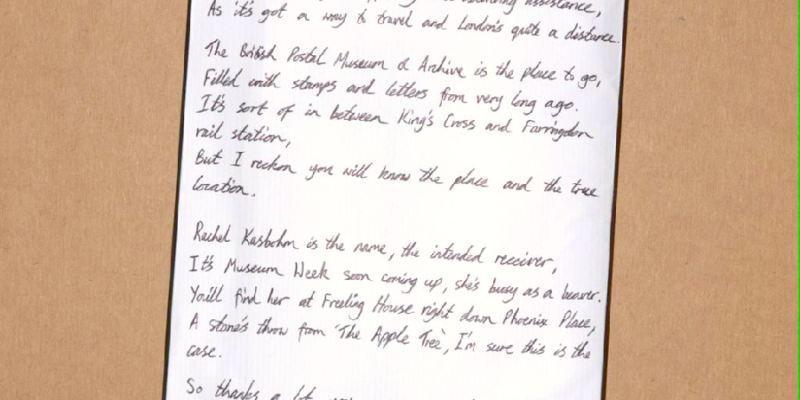 assistance,
As it's got a way to travel and London's quite a distance.
The British Postal Museum & Archive is the place to go,
Filled with stamps and letters from very long ago.
It's sort of in between King's Cross and Farringdon
rail station,
But I reckon you will know the place and the true
location.
Rachel Kasbohm is the name, the intended receiver,
It's Museum Week soon coming up, she's busy as a beaver.
You'll find her at Freeling House right down Phoenix Place,
A stone's throw from 'The Apple Tree', I'm sure this is the
case.
So thanks a lot